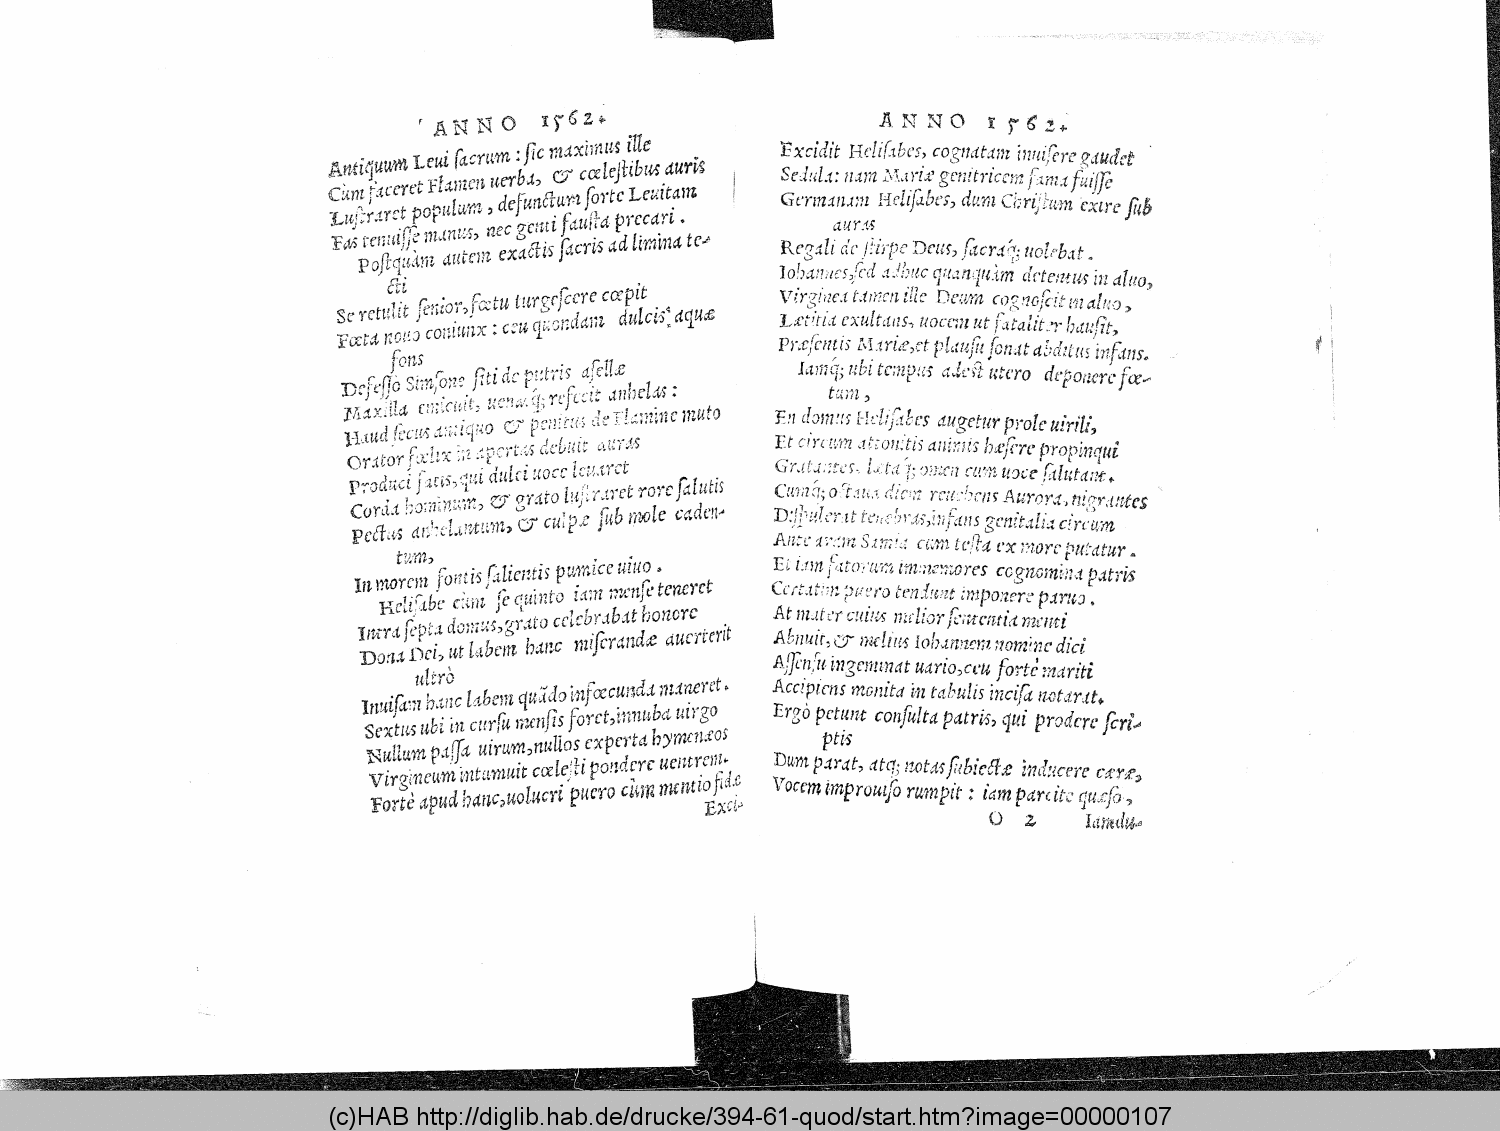 ANNO 1562.
Antiquum Leui sacrum : sic maximus ille
Cùm faceret Flamen uerba, & cœlestibus auris
Lustraret populum, defunctum sorte Leuitam
Fas tenuisse manus, nec genti fausta precari.
Postquàm autem exactis sacris ad limina te-
cti
Se retulit senior, fœtu turgescere cœpit
Fœta nouo coniunx : ceu quondam dulcis aquæ
fons
Defesso Simsone siti de putris asellæ
Maxilla emicuit, uenaq́; refecit anhelas :
Haud secus antiquo & penitus de Flamine muto
Orator fœlix in apertas debuit auras
Produci satis, qui dulci uoce leuaret
Corda hominum, & grato lustraret rore salutis
Pectus anhelantum, & culpæ sub mole caden-
tum,
In morem fontis salientis pumice uiuo.
Helisabe cùm se quinto iam mense teneret
Intra septa domus, grato celebrabat honore
Dona Dei, ut labem hanc miserandæ auerterit
ultrò
Inuisam hanc labem quãdo infœcunda maneret.
Sextus ubi in cursu mensis foret, innuba uirgo
Nullum passa uirum, nullos experta hymenæos
Virgineum intumuit cœlesti pondere uentrem.
Fortè apud hanc, uolucri puero cùm mentio fidæ
Exci-
ANNO 1562.
Excidit Helisabes, cognatam inuisere gaudet
Sedula: nam Mariæ genitricem fama fuisse
Germanam Helisabes, dum Christum exire sub
auras
Regali de stirpe Deus, sacraq́; uolebat.
Iohannes, sed adhuc quanquàm detentus in aluo,
Virginea tamen ille Deum cognoscit in aluo,
Lætitia exultans, uocem ut fataliter hausit,
Præsentis Mariæ, et plausu sonat abditus infans.
Iamq́; ubi tempus adest utero deponere fœ-
tum,
En domus Helisabes augetur prole uirili,
Et circum attonitis animis hæsere propinqui
Gratantes, lætaq́; omen cum uoce salutant.
Cumq́; octaua diem reuehens Aurora, nigrantes
Dispulerat tenebras, infans genitalia circum
Ante aram Samia cum testa ex more putatur.
Et iam fatorum immemores cognomina patris
Certatim puero tendunt imponere paruo.
At mater cuius melior sententia menti
Abnuit, & melius Iohannem nomine dici
Assensu ingeminat uario, ceu fortè mariti
Accipiens monita in tabulis incisa notarat.
Ergò petunt consulta patris, qui prodere scri-
ptis
Dum parat, atq; notas subiectæ inducere ceræ,
Vocem improuiso rumpit : iam parcite quæso,
O 2 Iamdu-
(c)HAB http://diglib.hab.de/drucke/394-61-quod/start.htm?image=00000107